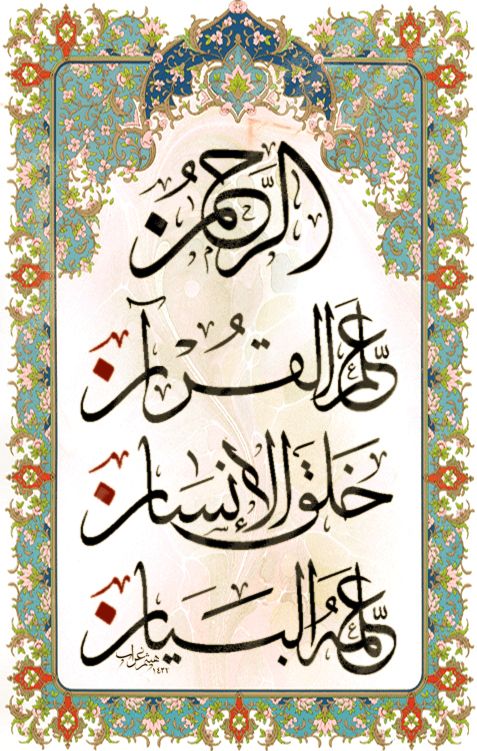 الرحمن
علم القرآن
خلق الإنسان
علمه البيان
١٤٣٢